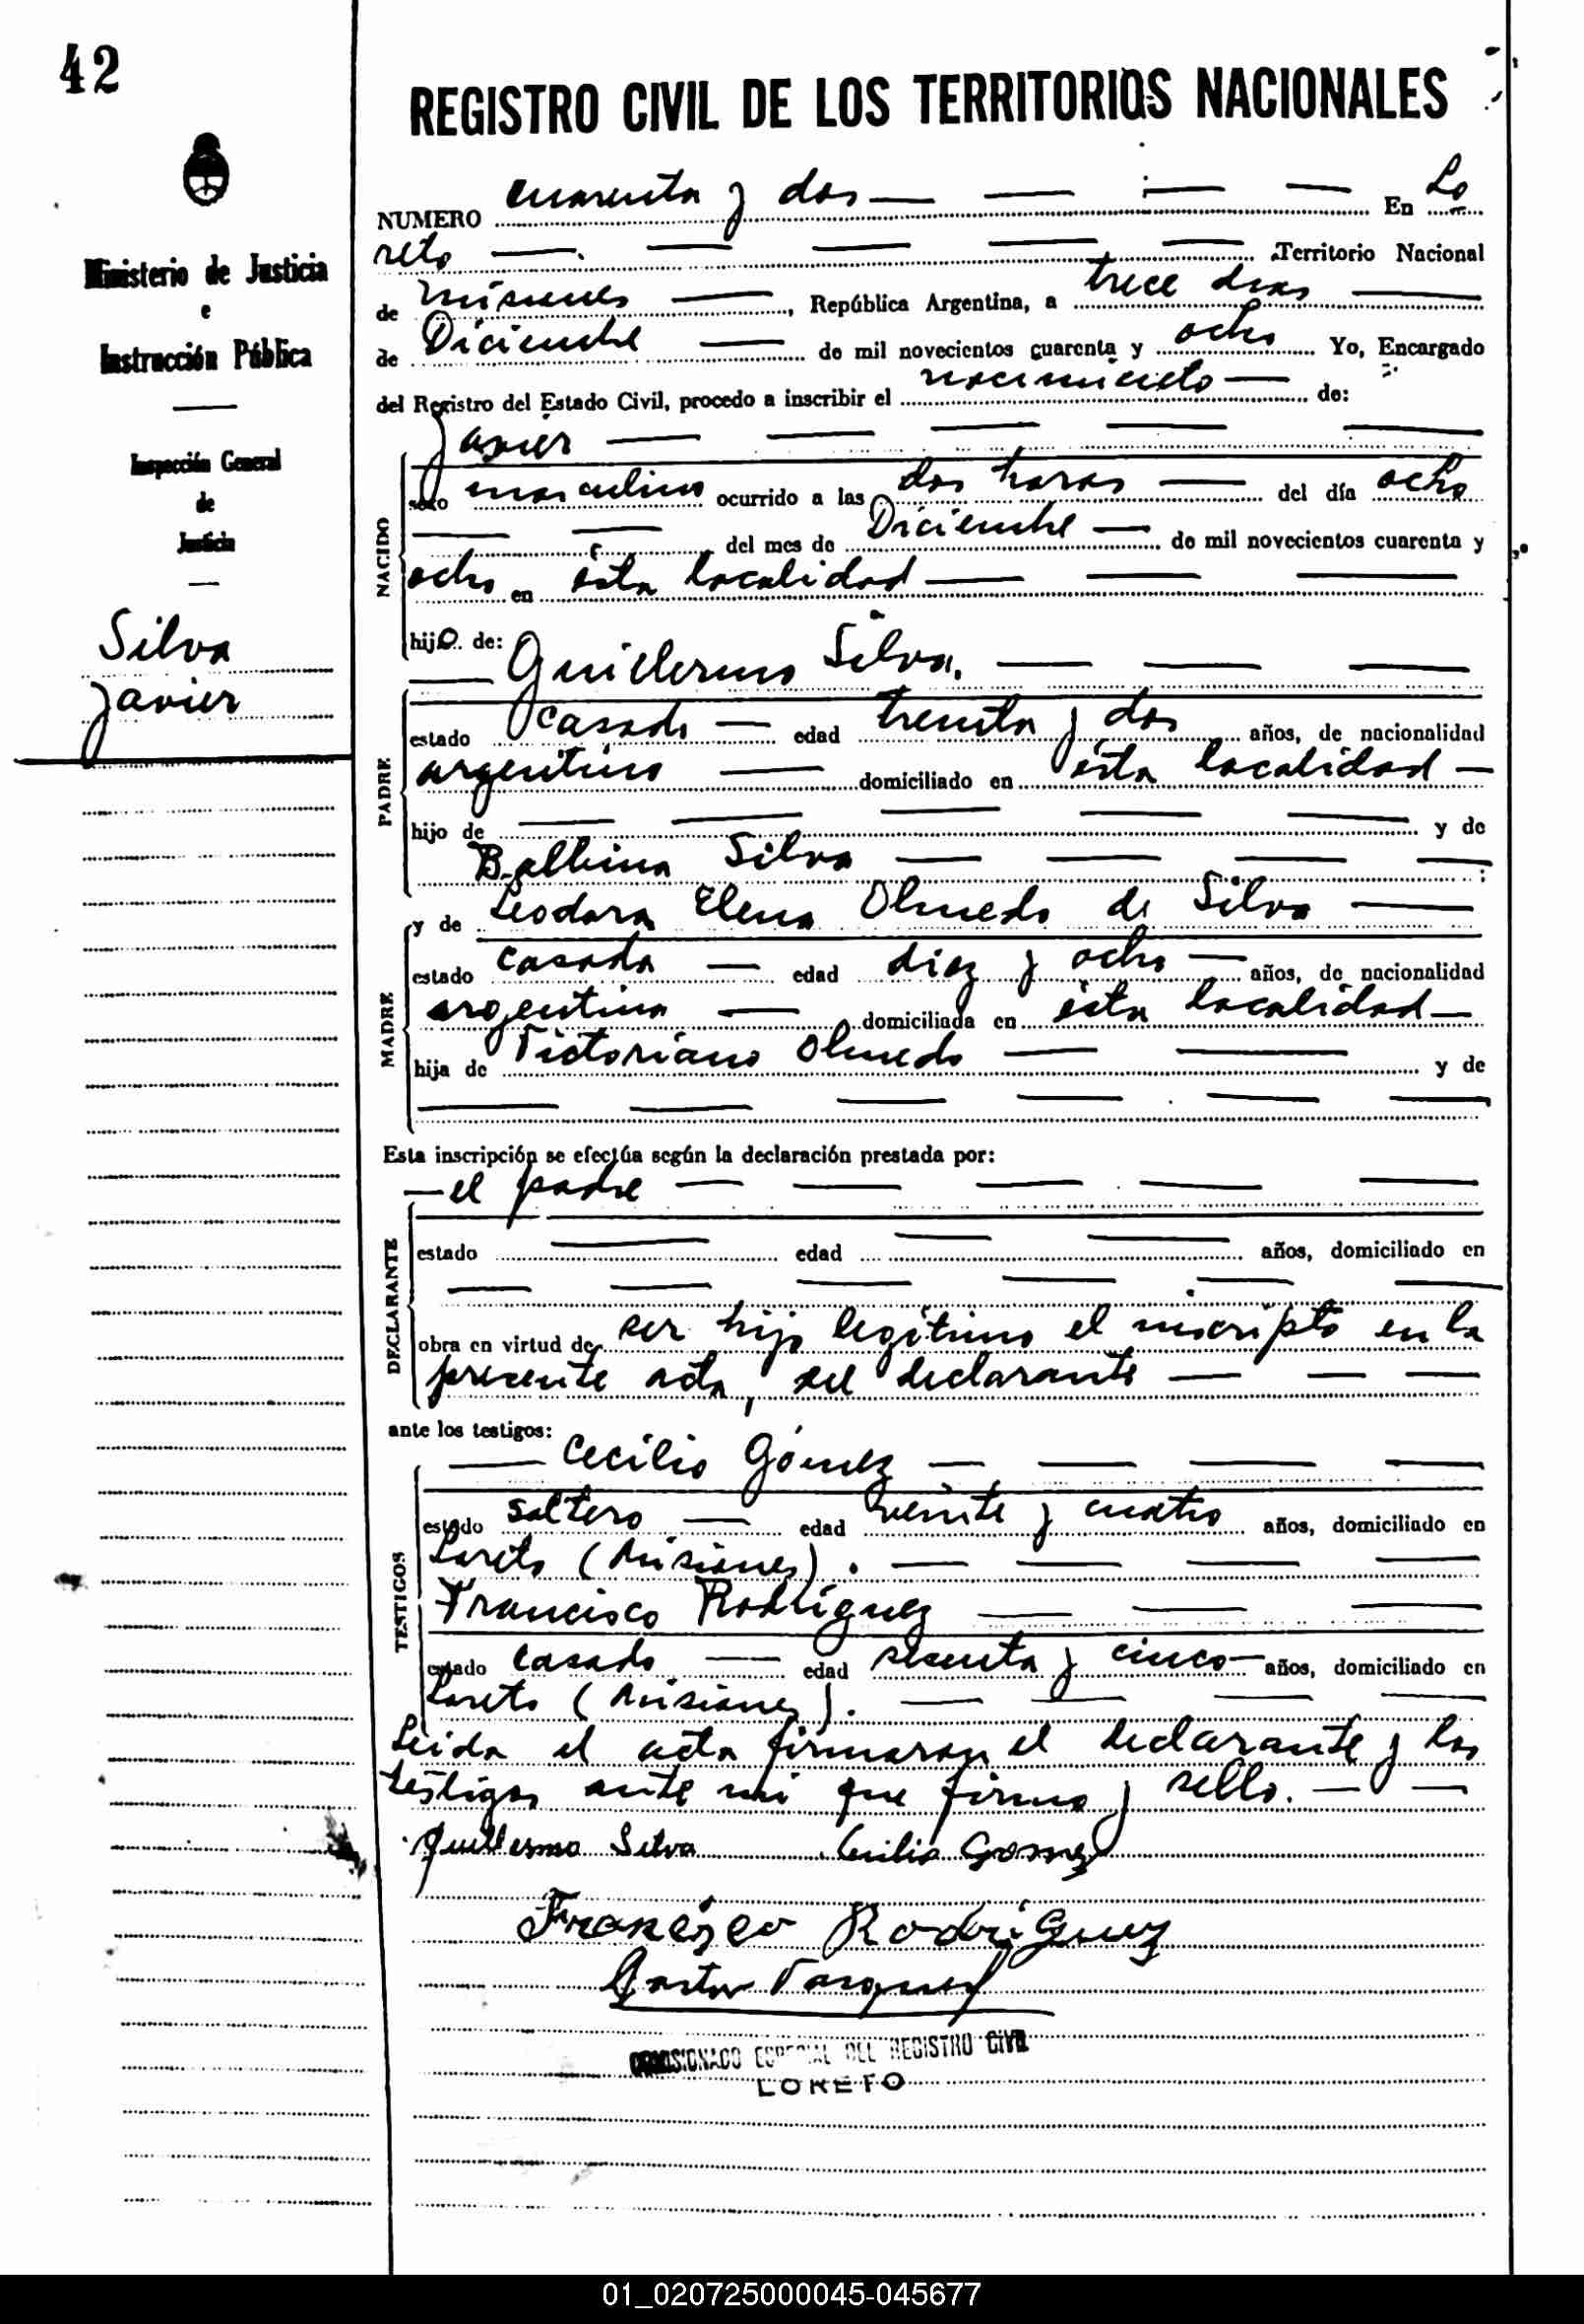 42
REGISTRO CIVIL DE LOS TERRITORIOS NACIONALES
Ministerio de Justicia
e
Instrucción Pública
Inspección General
de
Justicia
Silva
Javier
NUMERO cuarenta y dos — — — — En Lo
reto — — — — — Territorio Nacional
de Misiones —, República Argentina, a trece dias —
de Diciembre — de mil novecientos cuarenta y ocho Yo, Encargado
del Registro del Estado Civil, procedo a inscribir el nacimiento — de:
Javier — — — — —
NACIDO
sexo masculino ocurrido a las dos horas — del día ocho
— — del mes de Diciembre — de mil novecientos cuarenta y
ocho en ésta localidad — — —
hijo de:
— Guillermo Silva. — — —
PADRE
estado casado — edad treinta y dos años, de nacionalidad
argentino — domiciliado en ésta localidad —
hijo de — — — — — y de
Balbina Silva — — — —
MADRE
y de Leodora Elena Olmedo de Silva —
estado casada — edad diez y ocho — años, de nacionalidad
argentina — domiciliada en ésta localidad —
hija de Victoriano Olmedo — — y de
— — — — — —
Esta inscripción se efectúa según la declaración prestada por:
— el padre — — — — —
DECLARANTE
estado — edad — — años, domiciliado en
— — — — — —
obra en virtud de ser hijo legítimo el inscripto en la
presente acta, del declarante — — —
ante los testigos:
TESTIGOS
— Cecilio Gómez — — — —
estado soltero — edad veinte y cuatro años, domiciliado en
Loreto (Misiones). — — — —
Francisco Rodríguez — — —
estado casado — edad sesenta y cinco — años, domiciliado en
Loreto (Misiones). — — — —
Leida el acta firmaron el declarante y los
testigos ante mi que firmo y sello. — —
Guillermo Silva Cecilio Gomez
Francisco Rodriguez
Vasquez
COMISIONADO ESPECIAL DEL REGISTRO CIVIL
LORETO
01_020725000045-045677